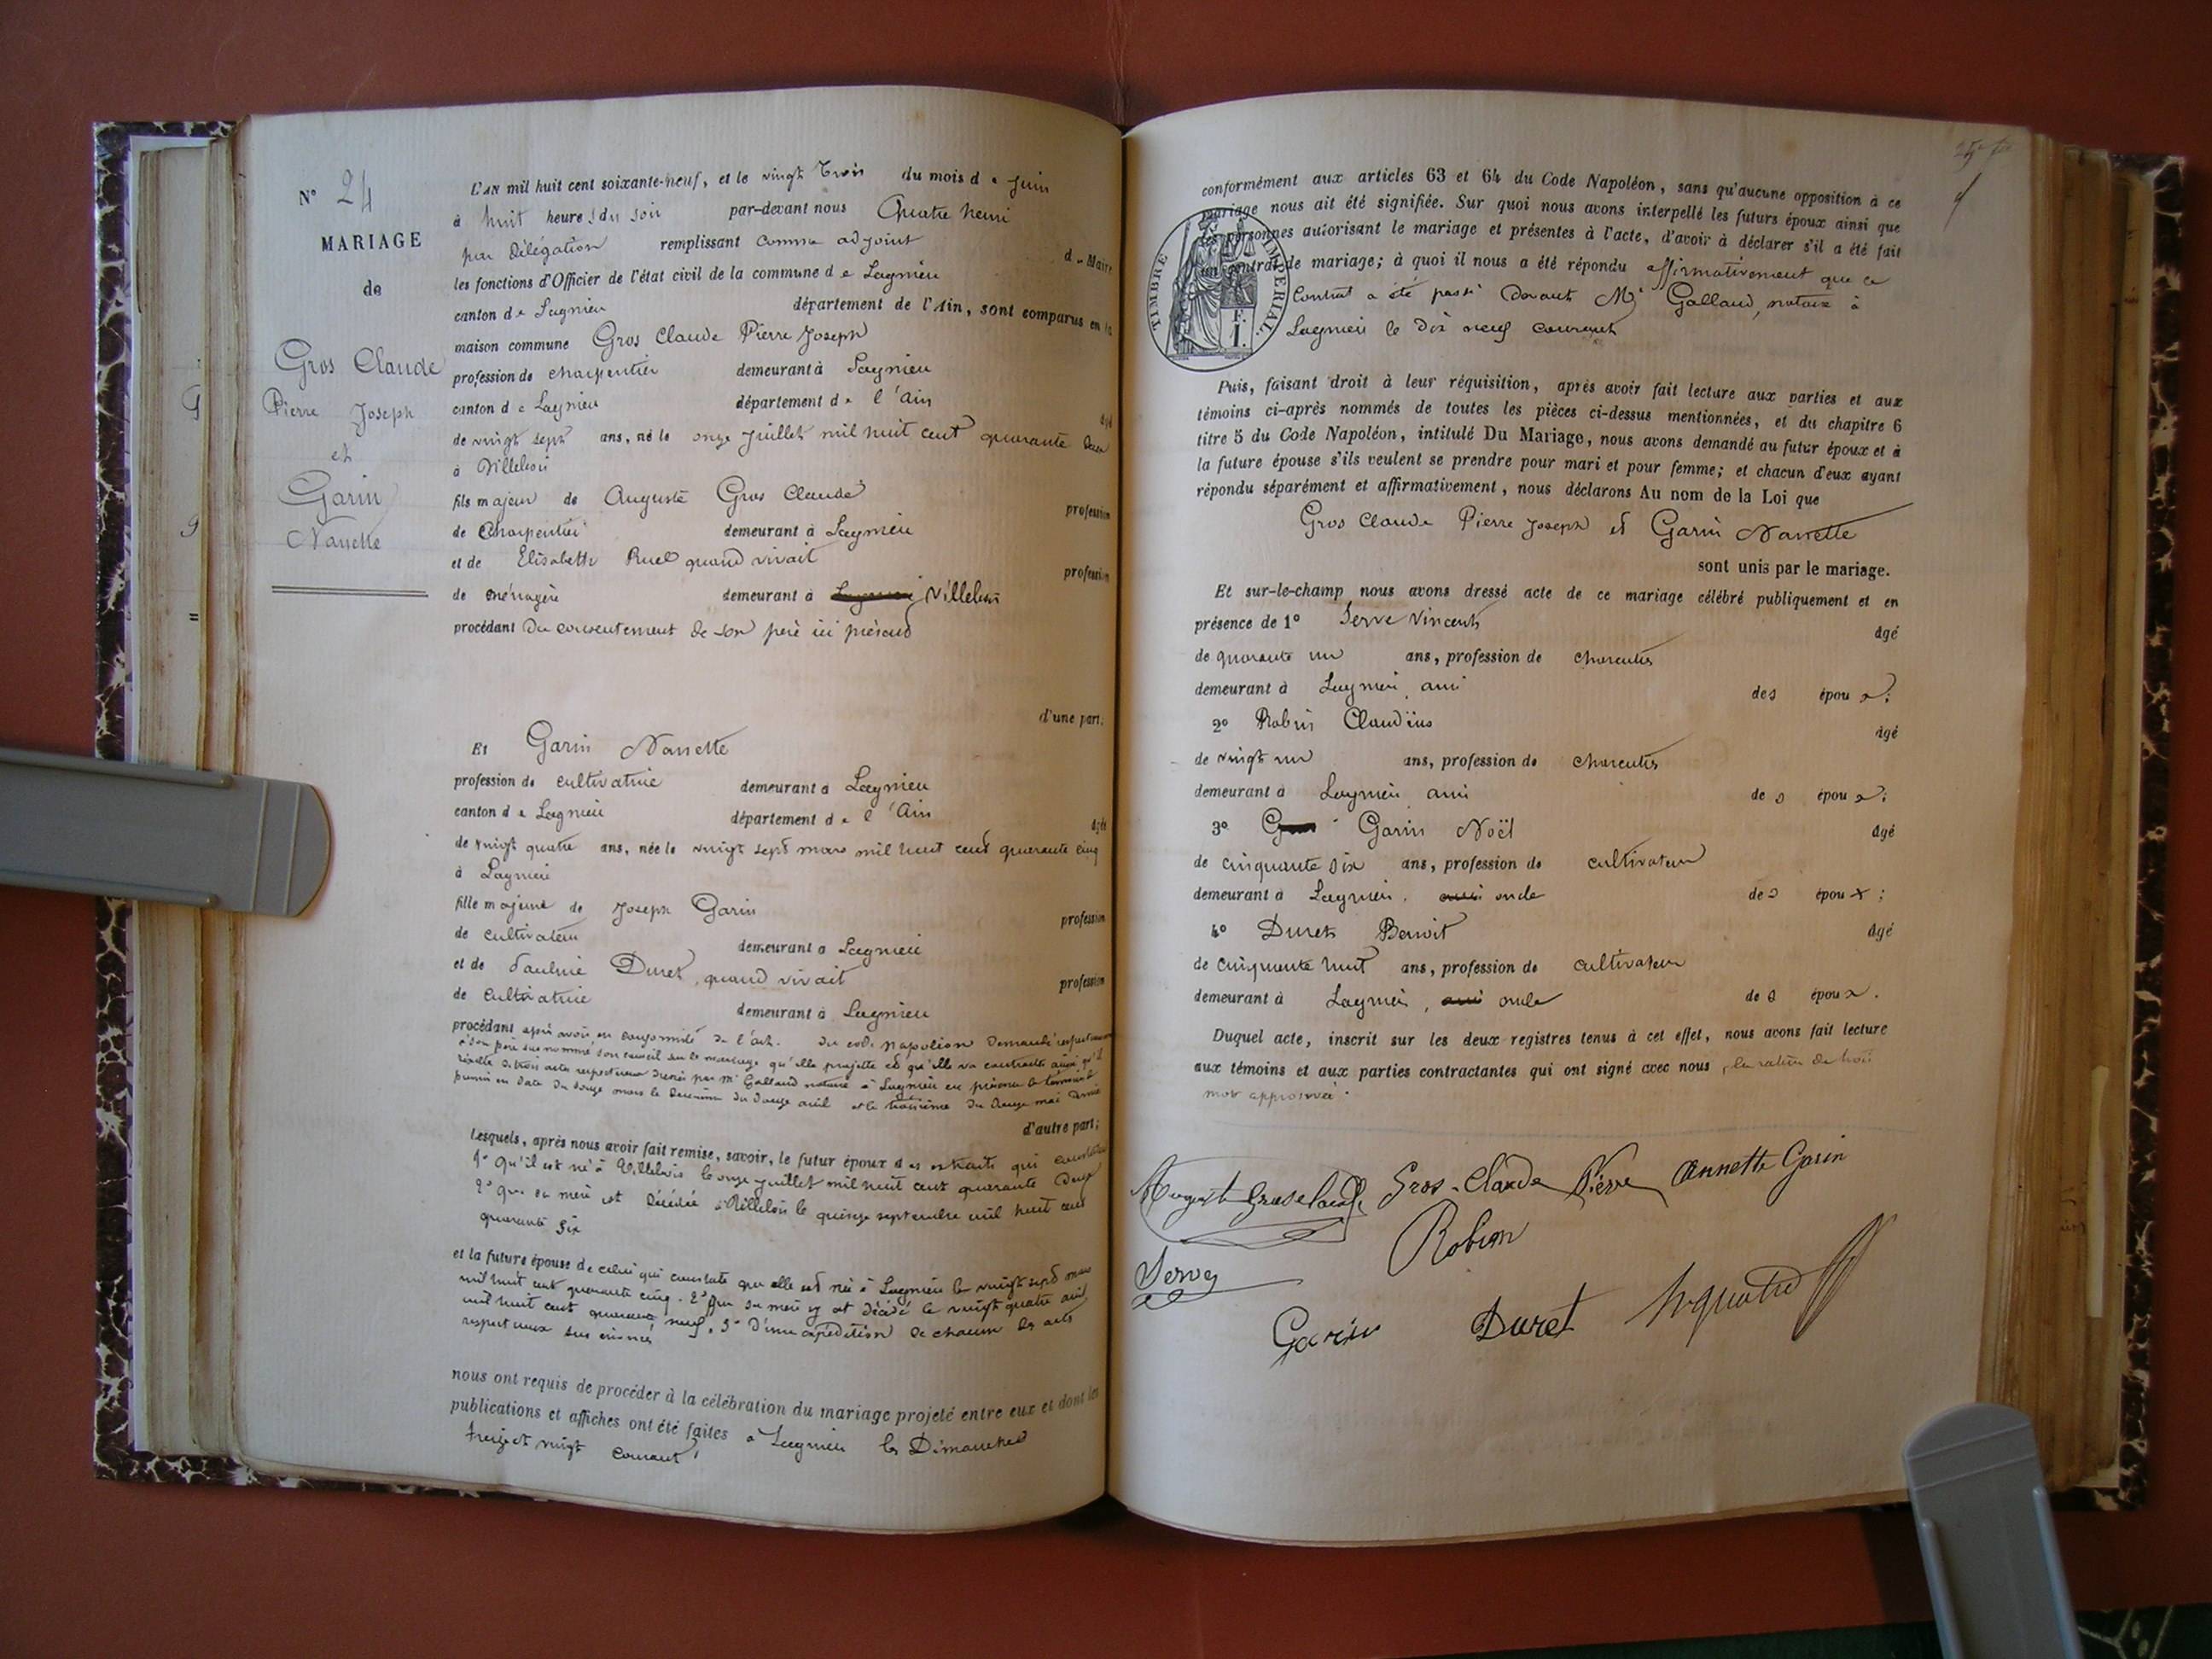 N° 24
MARIAGE
de
Gros Claude
Pierre Joseph
et
Garin
Nanette
L'AN mil huit cent soixante-neuf, et le vingt trois du mois de Juin
à huit heures du soir par-devant nous Quatre henri
par délégation remplissant comme adjoint de Maire
les fonctions d'Officier de l'état civil de la commune de Lagnieu
canton de Lagnieu département de l'Ain, sont comparus en la
maison commune Gros Claude Pierre Joseph
profession de charpentier demeurant à Lagnieu
canton de Lagnieu département de l'Ain âgé
de vingt sept ans, né le onze Juillet mil huit cent quarante deux
à Villebois
fils majeur de Auguste Gros Claude profession
de Charpentier demeurant à Lagnieu
et de Elisabeth Ruel quand vivait profession
de ménagère demeurant à Lagnieu Villebois
procédant du consentement de son père ici présent
d'une part;
Et Garin Nanette
profession de cultivatrice demeurant à Lagnieu
canton de Lagnieu département de l'Ain âgée
de vingt quatre ans, née le vingt sept mars mil huit cent quarante cinq
à Lagnieu
fille majeure de Joseph Garin profession
de cultivateur demeurant à Lagnieu
et de Pauline Duret, quand vivait profession
de cultivatrice demeurant à Lagnieu
procédant après avoir en conformité de l'art. du code Napoléon demandé respectueusement
à son père sus nommé son conseil sur le mariage qu'elle projette et qu'elle va contracter ainsi qu'il
résulte de trois actes respectueux dressés par Me Galland notaire à Lagnieu en présence de témoins le
premier en date du douze mars le deuxième du douze avril et le troisième du douze mai dernier
d'autre part;
Lesquels, après nous avoir fait remise, savoir, le futur époux des extraits qui constatent
1° qu'il est né à Villebois le onze juillet mil huit cent quarante deux
2° que sa mère est décédée à Villebois le quinze septembre mil huit cent
quarante six
et la future épouse de celui qui constate qu'elle est née à Lagnieu le vingt sept mars
mil huit cent quarante cinq. 2° Que sa mère y est décédé le vingt quatre avril
mil huit cent quarante neuf, 3° D'une expédition de chacun des actes
respectueux sus énoncés
nous ont requis de procéder à la célébration du mariage projeté entre eux et dont les
publications et affiches ont été faites à Lagnieu les Dimanches
treize et vingt courant,
conformément aux articles 63 et 64 du Code Napoléon, sans qu'aucune opposition à ce
mariage nous ait été signifiée. Sur quoi nous avons interpellé les futurs époux ainsi que
les personnes autorisant le mariage et présentes à l'acte, d'avoir à déclarer s'il a été fait
un contrat de mariage; à quoi il nous a été répondu affirmativement que ce
Contrat a été passé devant Me Galland, notaire à
Lagnieu le dix neuf courant
TIMBRE IMPÉRIAL
Puis, faisant droit à leur réquisition, après avoir fait lecture aux parties et aux
témoins ci-après nommés de toutes les pièces ci-dessus mentionnées, et du chapitre 6
titre 5 du Code Napoléon, intitulé Du Mariage, nous avons demandé au futur époux et à
la future épouse s'ils veulent se prendre pour mari et pour femme; et chacun d'eux ayant
répondu séparément et affirmativement, nous déclarons Au nom de la Loi que
Gros Claude Pierre Joseph et Garin Nanette
sont unis par le mariage.
Et sur-le-champ nous avons dressé acte de ce mariage célébré publiquement et en
présence de 1° Serve Vincent âgé
de quarante un ans, profession de charcutier
demeurant à Lagnieu, ami des époux;
2° Robin Claudius âgé
de vingt un ans, profession de charcutier
demeurant à Lagnieu ami des époux;
3° Garin Noël âgé
de cinquante six ans, profession de cultivateur
demeurant à Lagnieu, ami oncle des époux;
4° Duret Benoit âgé
de cinquante huit ans, profession de cultivateur
demeurant à Lagnieu, ami oncle des époux.
Duquel acte, inscrit sur les deux registres tenus à cet effet, nous avons fait lecture
aux témoins et aux parties contractantes qui ont signé avec nous, la rature de trois
mots approuvée.
August Grosclaude Gros-Claude Pierre Annette Garin
Robin
Serve
Garin Duret h quatre